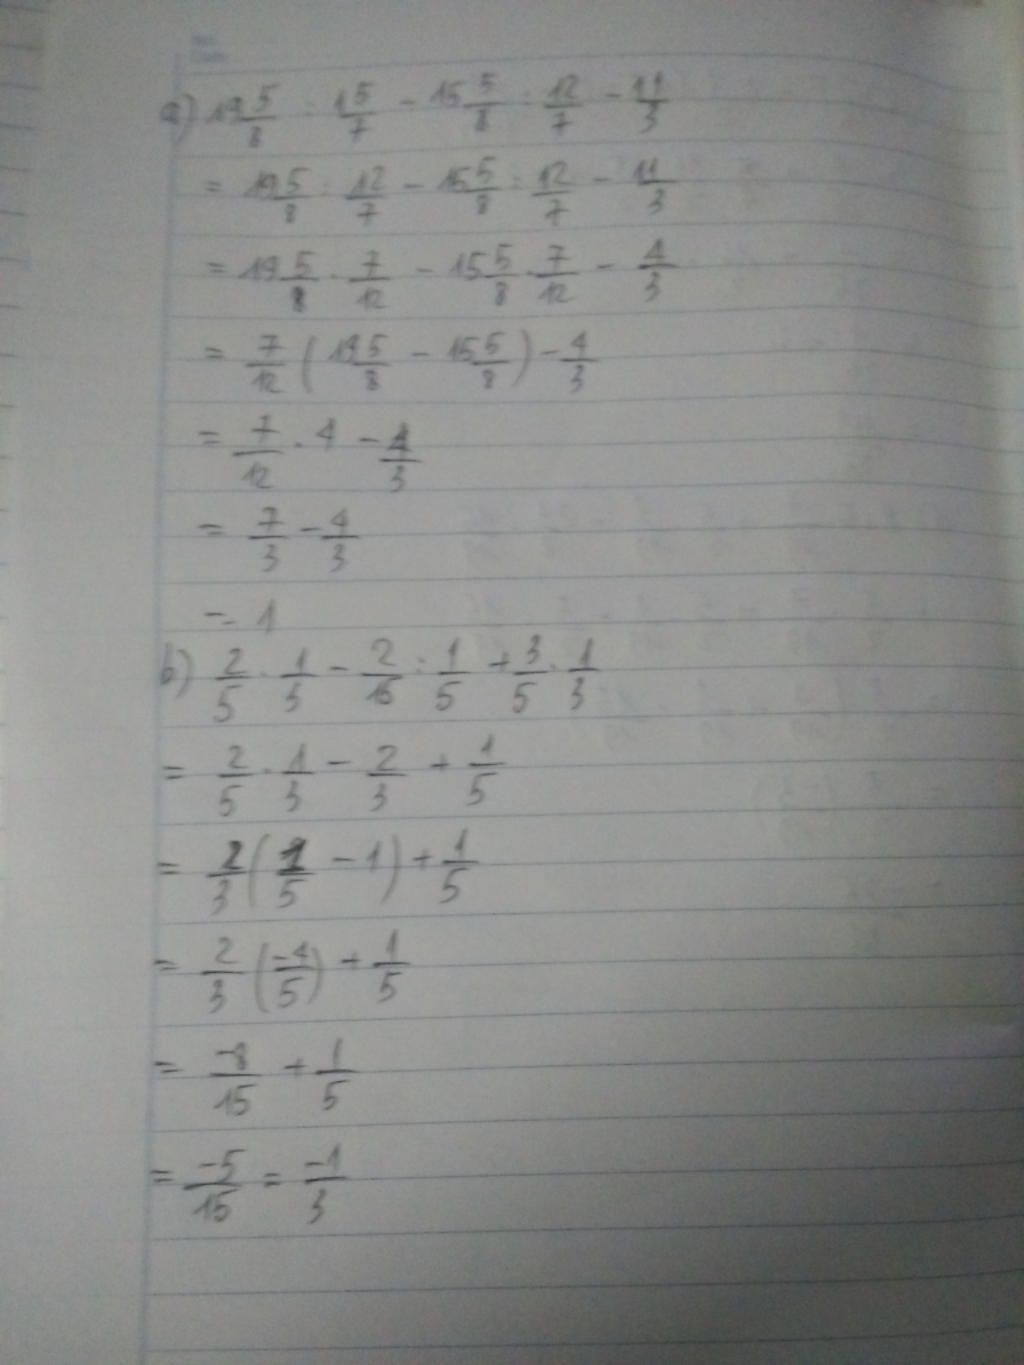 a) 19 5/8 : 1 5/7 - 15 5/8 : 12/7 - 1 1/3
= 19 5/8 : 12/7 - 15 5/8 : 12/7 - 1 1/3
= 19 5/8 . 7/12 - 15 5/8 . 7/12 - 4/3
= 7/12 ( 19 5/8 - 15 5/8 ) - 4/3
= 7/12 . 4 - 4/3
= 7/3 - 4/3
= 1
b) 2/5 . 1/3 - 2/15 : 1/5 + 3/5 . 1/3
= 2/5 . 1/3 - 2/3 + 1/5
= 2/3 ( 1/5 - 1 ) + 1/5
= 2/3 ( -4/5 ) + 1/5
= -8/15 + 1/5
= -5/15 = -1/3